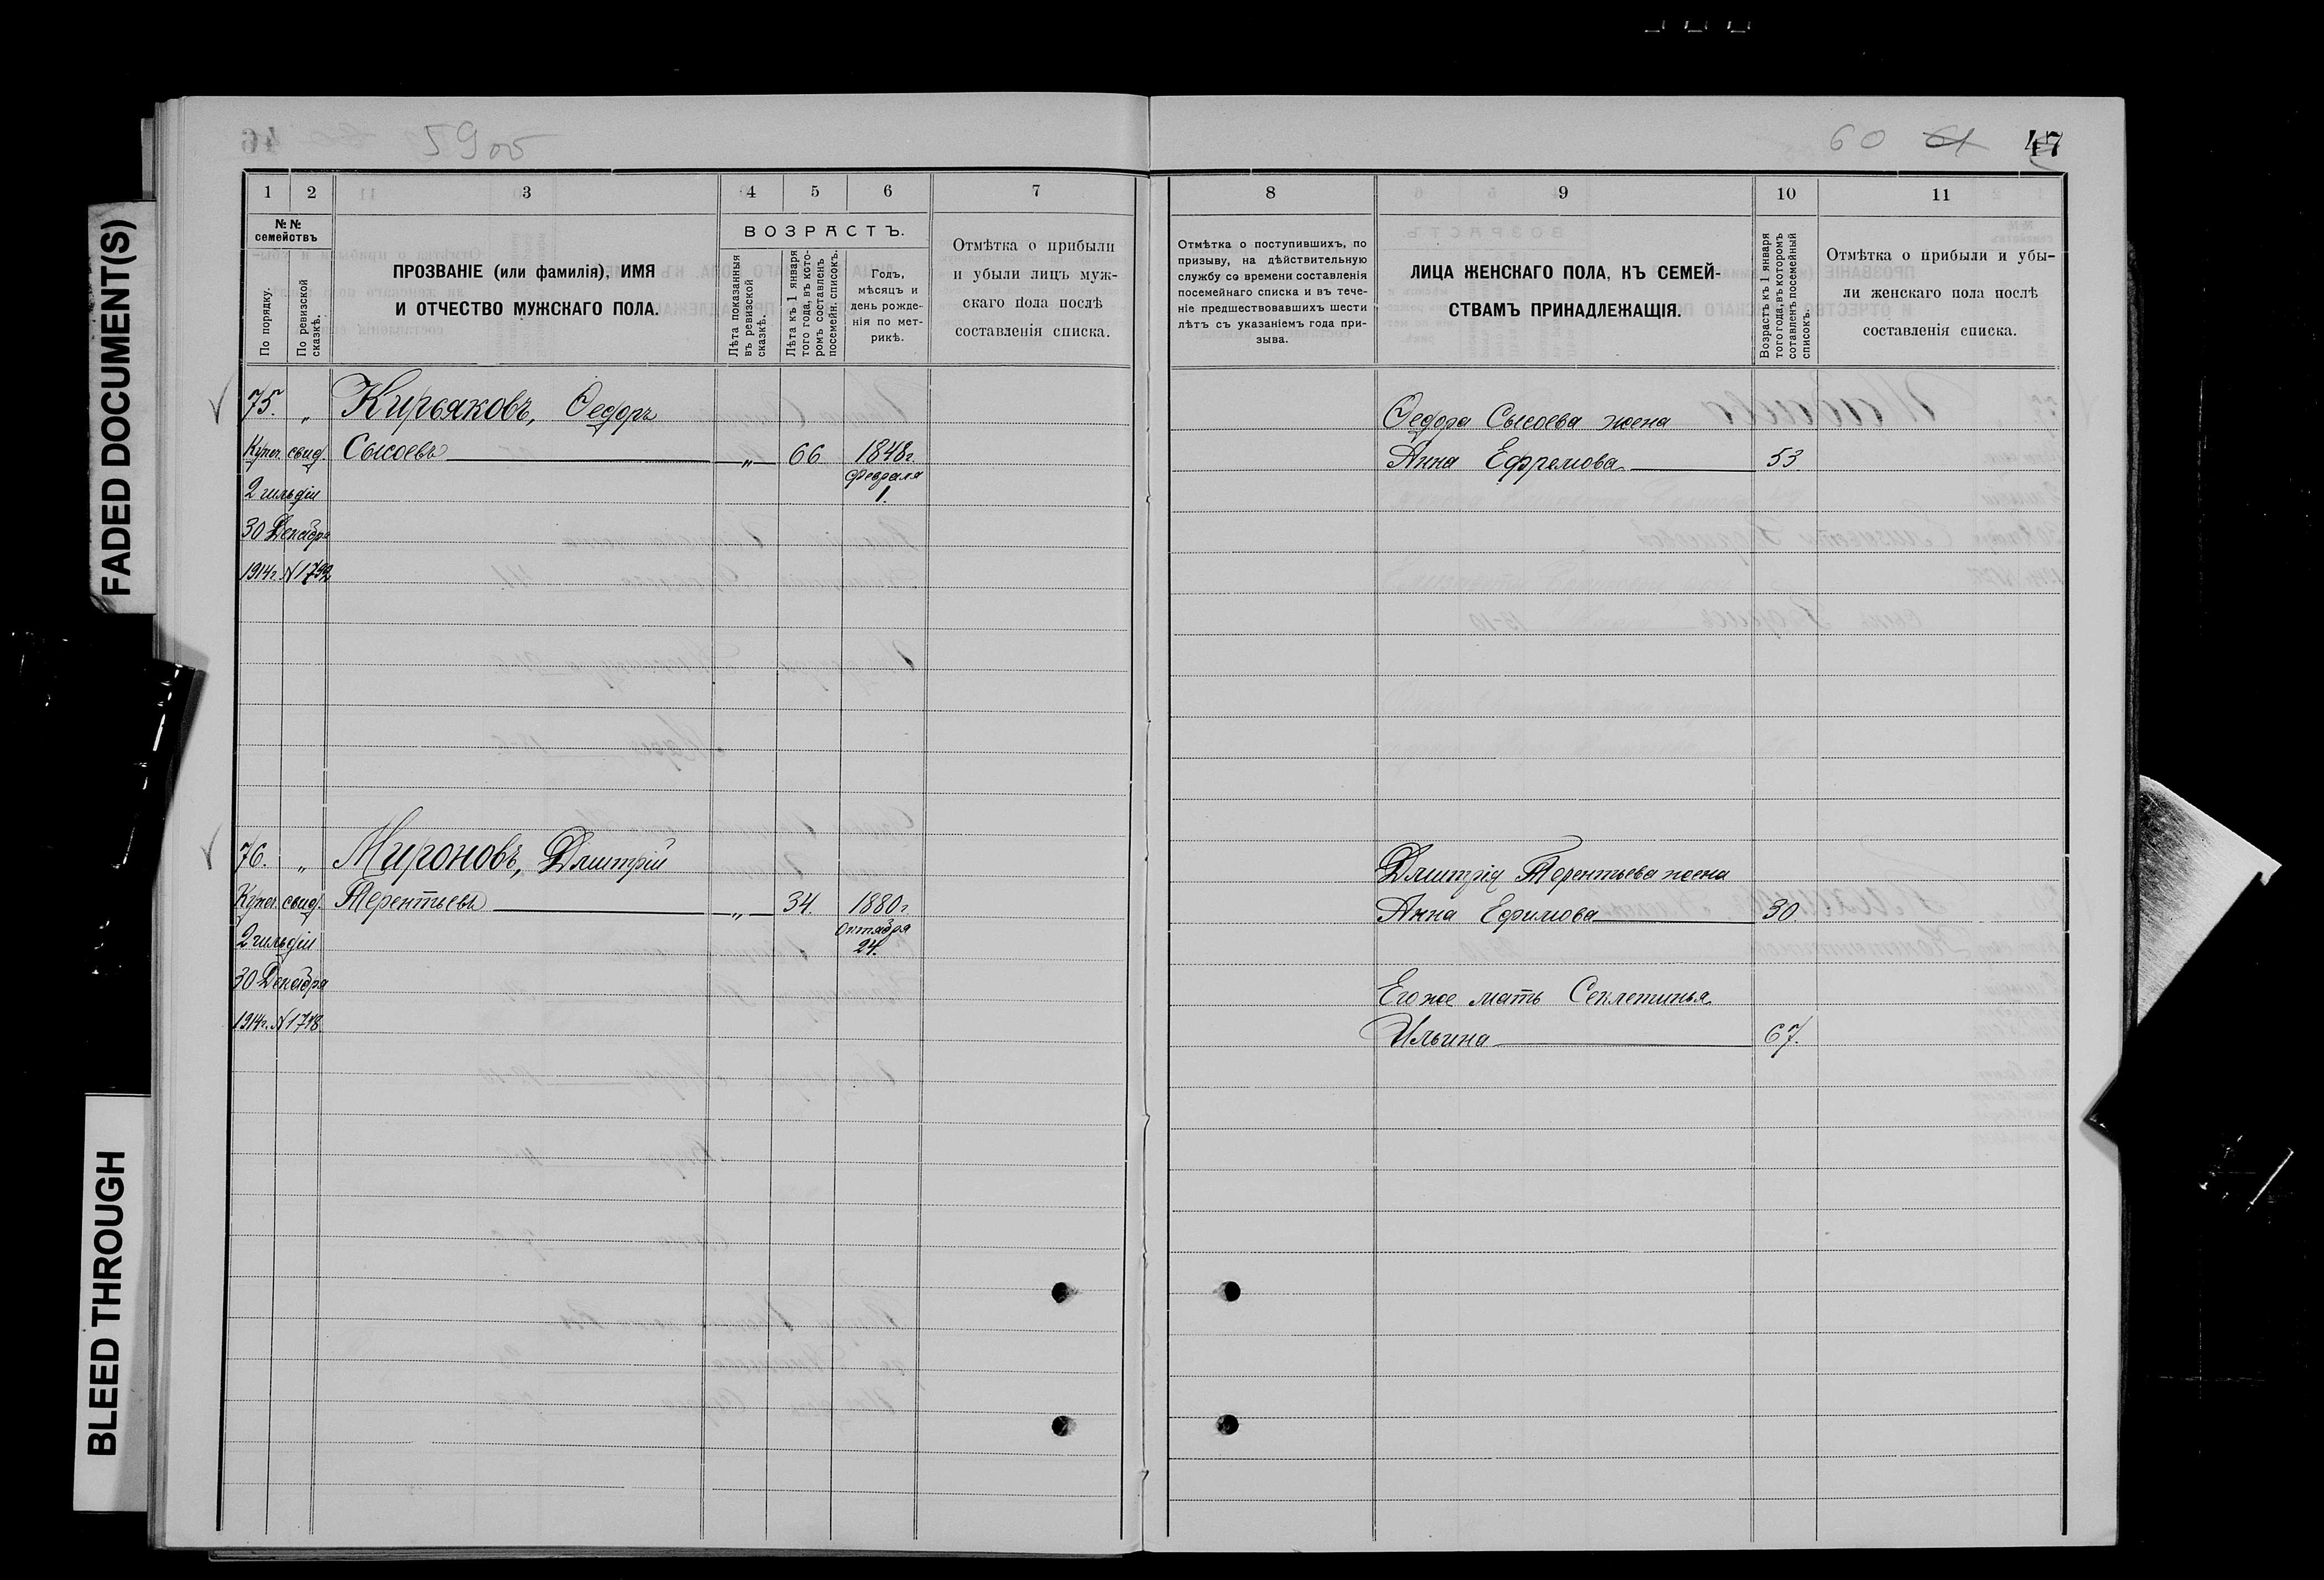 FADED DOCUMENT(S)
BLEED THROUGH
59 об
1 2 3 4 5 6 7
№ № семействъ
По порядку.
По ревизской сказкѣ.
ПРОЗВАНІЕ (или фамилія), ИМЯ
И ОТЧЕСТВО МУЖСКАГО ПОЛА.
ВОЗРАСТЪ.
Лѣта показанныя
въ ревизской
сказкѣ.
Лѣта къ 1 января
того года, въ кото-
ромъ составленъ
посемейн. списокъ.
Годъ,
мѣсяцъ и
день рожде-
нія по мет-
рикѣ.
Отмѣтка о прибыли
и убыли лицъ муж-
скаго пола послѣ
составленія списка.
75. „ Кирьяковъ, Ѳедоръ
Купеч. свид. Сысоевъ „ 66 1848 г.
2 гильдіи февраля
1.
30 Декабря
1914 г. № 1792
76. „ Мироновъ, Дмитрій
Купеч. свид. Терентьевъ „ 34. 1880 г.
2 гильдіи октября
24.
30 Декабря
1914 г. № 1718
60 61 47
8 9 10 11
Отмѣтка о поступившихъ, по
призыву, на дѣйствительную
службу со времени составленія
посемейнаго списка и въ тече-
ніе предшествовавшихъ шести
лѣтъ съ указаніемъ года при-
зыва.
ЛИЦА ЖЕНСКАГО ПОЛА, КЪ СЕМЕЙ-
СТВАМЪ ПРИНАДЛЕЖАЩІЯ.
Возрастъ къ 1 января
того года, въ которомъ
сотавленъ посемейный
списокъ.
Отмѣтка о прибыли и убы-
ли женскаго пола послѣ
составленія списка.
Ѳедора Сысоева жена
Анна Ефремова 53
Дмитрія Терентьева жена
Анна Ефимова 30.
Его же мать Секлетинья
Ильина 67.